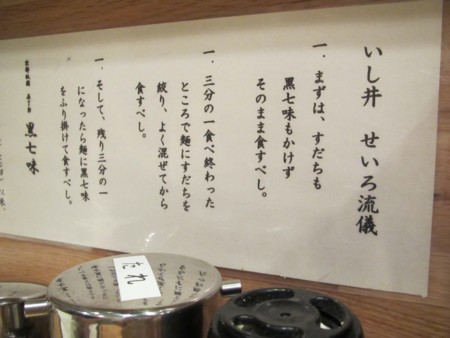 いし井　せいろ流儀
一．まずは、すだちも
黒七味もかけず
そのまま食すべし。
一．三分の一食べ終わった
ところで麺にすだちを
絞り、よく混ぜてから
食すべし。
一．そして、残り三分の一
になったら麺に黒七味
をふり掛けて食すべし。
黒七味
たれ